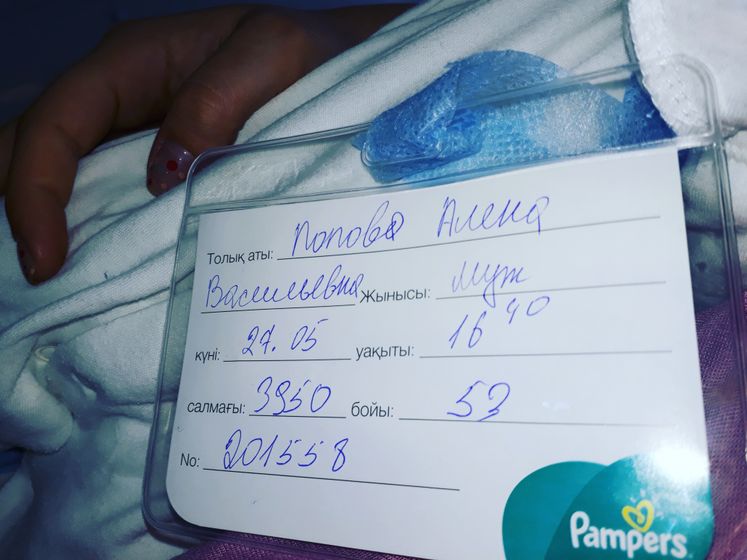 Толық аты: Попова Алена
Васильевна Жынысы: муж
күні: 27.05 уақыты: 16 40
салмағы: 3950 бойы: 53
No: 201558
Pampers